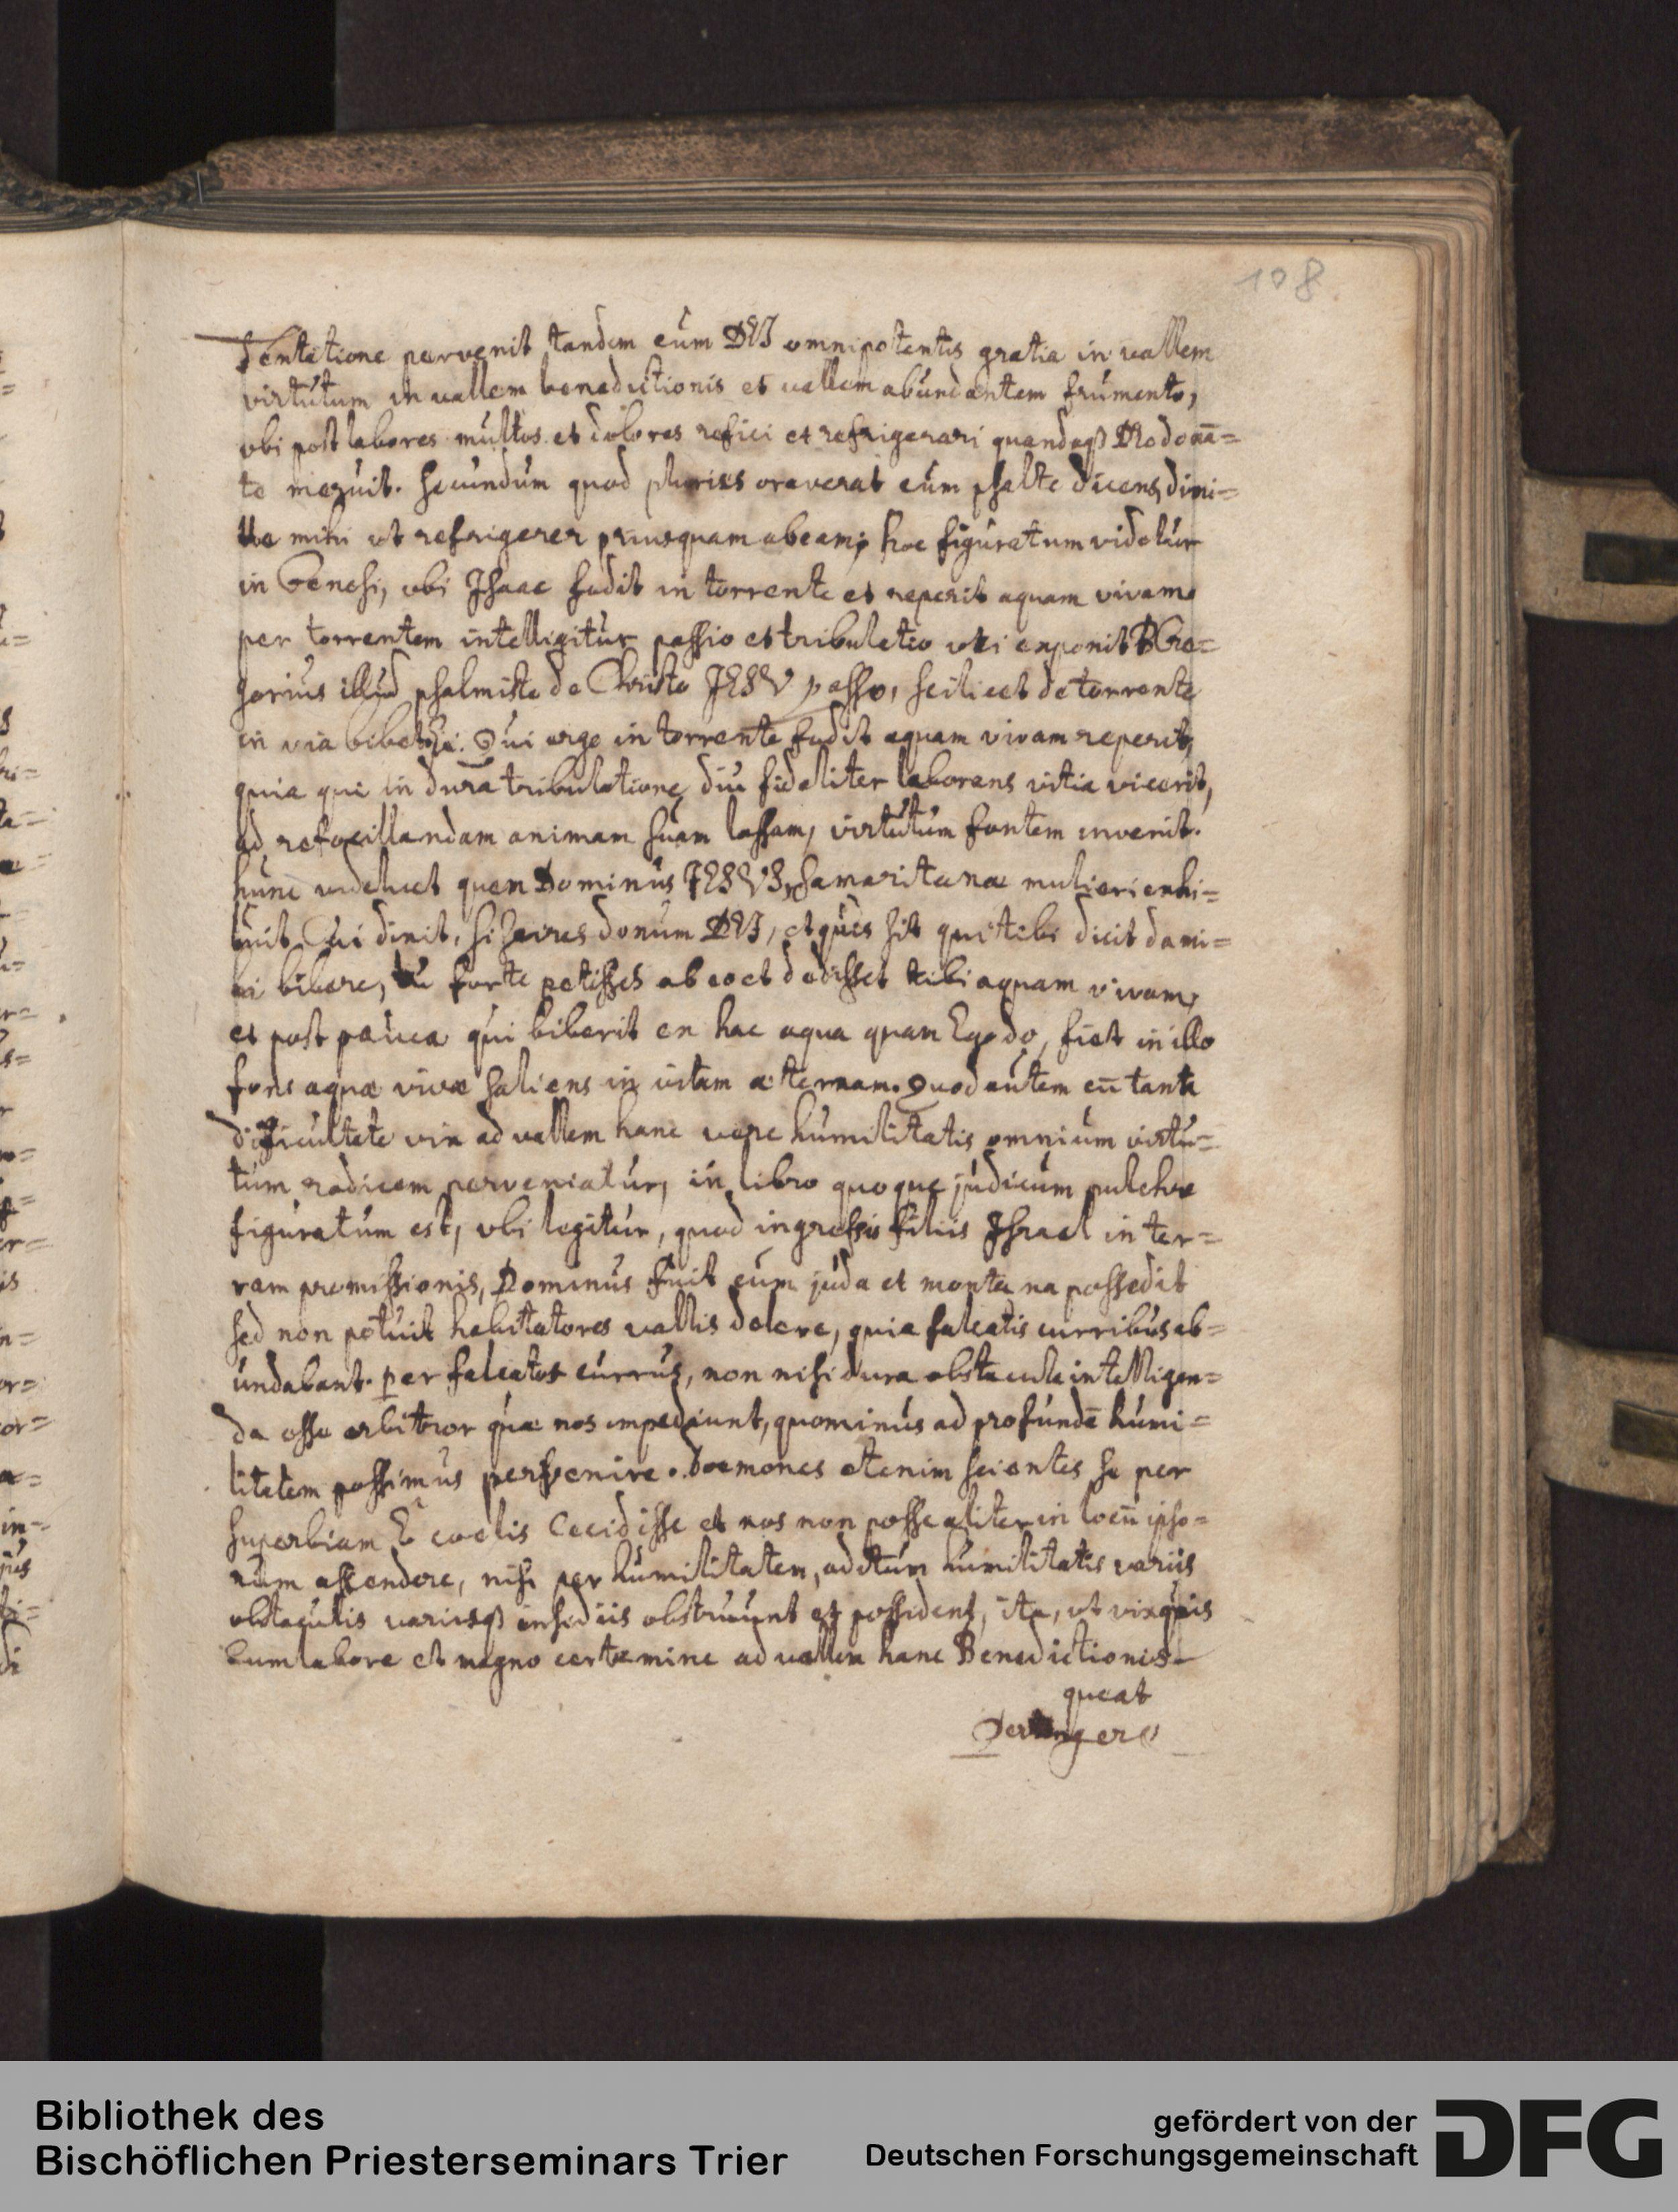 108
Tentatione pervenit tandem cum DEI omnipotentis gratia in vallem
virtutum in vallem benedictionis et vallem abundantem frumento,
vbi post labores multos et dolores refici et refrigerari quandoqꝫ DEo donā=
te meruit. Secundum quod pluries oraverat cum psalte dicens, dimi=
tte mihi vt refrigerer priusquam abeam; hoc figuratum videtur
in Genesi, vbi Isaac fodit in torrente et reperit aquam vivam.
per torrentem intelligitur passio et tribulatio vti exponit B Gre=
gorius illud psalmiste de Christo JESV passo, scilicet de torrente
in via bibet. Qui ergo in torrente fodit aquam vivam reperit,
quia qui in dura tribulatione diu fideliter laborans vitia vicerit,
ad refocillandam animam suam lassam, virtutum fontem invenit.
hunc videlicet quem Dominus JESVS samaritanae mulieri exhi=
buit Cui dixit, si scires donum DEI, et quis sit qui tibi dicit da mi=
hi bibere, tu forte petisses ab eo et dedisset tibi aquam vivam,
et post pauca qui biberit ex hac aqua quam Ego do, fiet in illo
fons aquae vivae saliens in vitam aeternam. Quod autem cū tanta
difficultate vix ad vallem hanc vere humilitatis omnium virtu=
tum radicem perveniatur, in libro quoque judicum pulchre
figuratum est, vbi legitur, quod ingressis filiis Israel in ter=
ram promissionis, Dominus fuit cum juda et montana possedit
sed non potuit habitatores vallis delere, quia falcatis curribus ab=
undabant. per falcatos currus, non nisi dura obstacula intelligen=
da esse arbitror quae nos impediunt, quominus ad profundā humi=
litatem possimus pervenire. daemones etenim scientes se per
superbiam E coelis Cecidisse et nos non posse aliter in locū ipso=
rum ascendere, nisi per humilitatem, aditum humilitatis variis
obstaculis variisqꝫ insidiis obstruunt et possident, ita, vt vix quis
cum labore et magno certamine ad vallem hanc Benedictionis
queat
Pertingere
Bibliothek des
Bischöflichen Priesterseminars Trier
gefördert von der
Deutschen Forschungsgemeinschaft
DFG